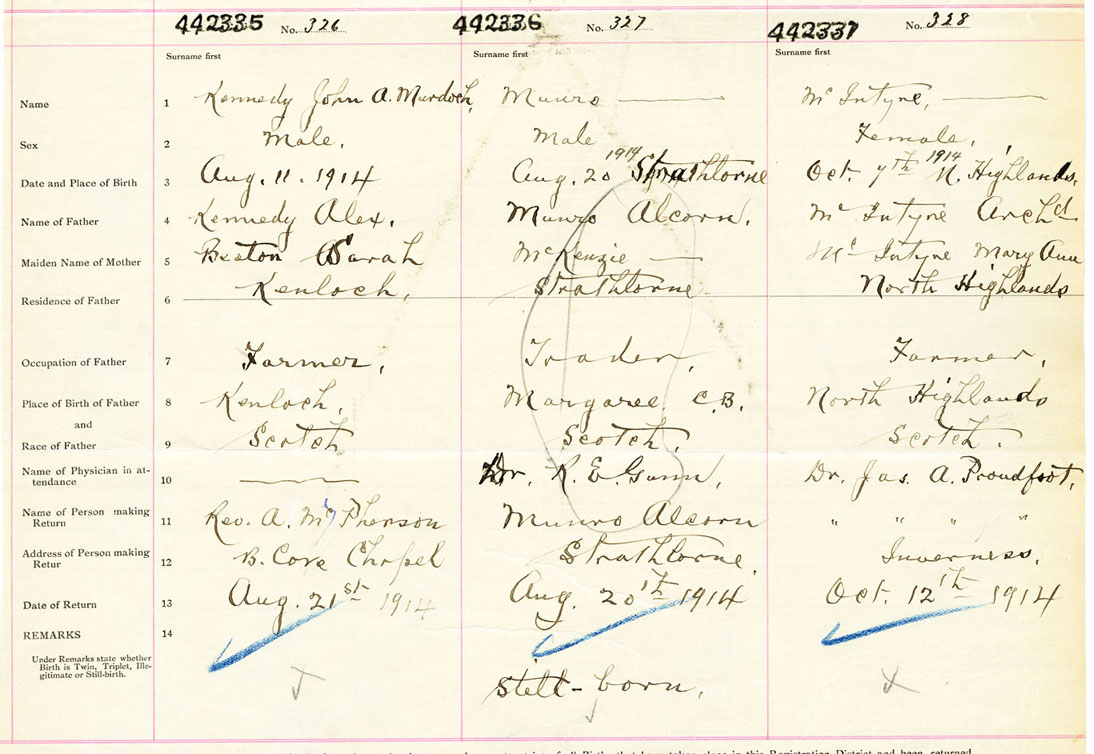 442335 No. 326 442336 No. 327 442337 No. 328
Surname first Surname first Surname first
Name 1 Kennedy John A. Murdoch, Munro — Mc Intyre, —
Sex 2 Male, Male Female,
Date and Place of Birth 3 Aug. 11. 1914 Aug. 20 1914 Strathlorne Oct. 7th 1914 N. Highlands,
Name of Father 4 Kennedy Alex, Munro Alcorn, Mc Intyre Archd
Maiden Name of Mother 5 Beaton Sarah McKenzie — Mc Intyre Mary Ann
Residence of Father 6 Kenloch, Strathlorne North Highlands
Occupation of Father 7 Farmer, Trader, Farmer,
Place of Birth of Father 8 Kenloch, Margaree C.B. North Highlands
and
Race of Father 9 Scotch Scotch, Scotch.
Name of Physician in at-
tendance 10 — Dr. R. E. Gunn, Dr. Jas. A. Proudfoot,
Name of Person making
Return 11 Rev. A. McPherson Munro Alcorn " " " "
Address of Person making
Retur 12 B. Cove Chapel Strathlorne, Inverness,
Date of Return 13 Aug. 21st 1914 Aug. 20th 1914 Oct. 12th 1914
REMARKS 14
Under Remarks state whether
Birth is Twin, Triplet, Ille-
gitimate or Still-birth.
Still-born,
of all Births that have taken place in this Registration District and been returned